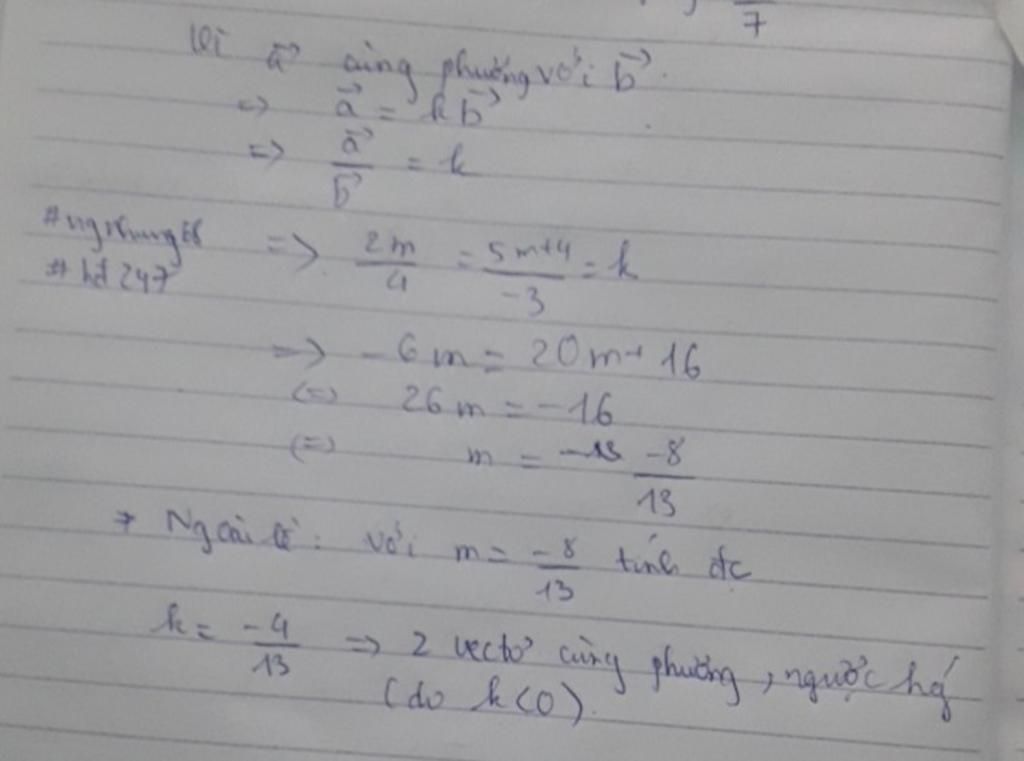 7
Vì a⃗ cùng phương với b⃗.
=> a⃗ = k b⃗
=> a⃗/b⃗ = k
#ngnhung
# hđ 247
=> 2m/4 = 5m+4/-3 = k
=> -6m = 20m+16
<=> 26m = -16
<=> m = -8/13
* Ngoài lề: với m = -8/13 tính đc
k = -4/13 => 2 vectơ cùng phương, ngược hg
(do k<0).